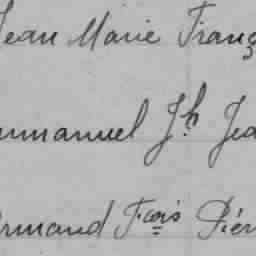 Jean Marie Franç
mmanuel Jh Jea
Armand Fcois Pier